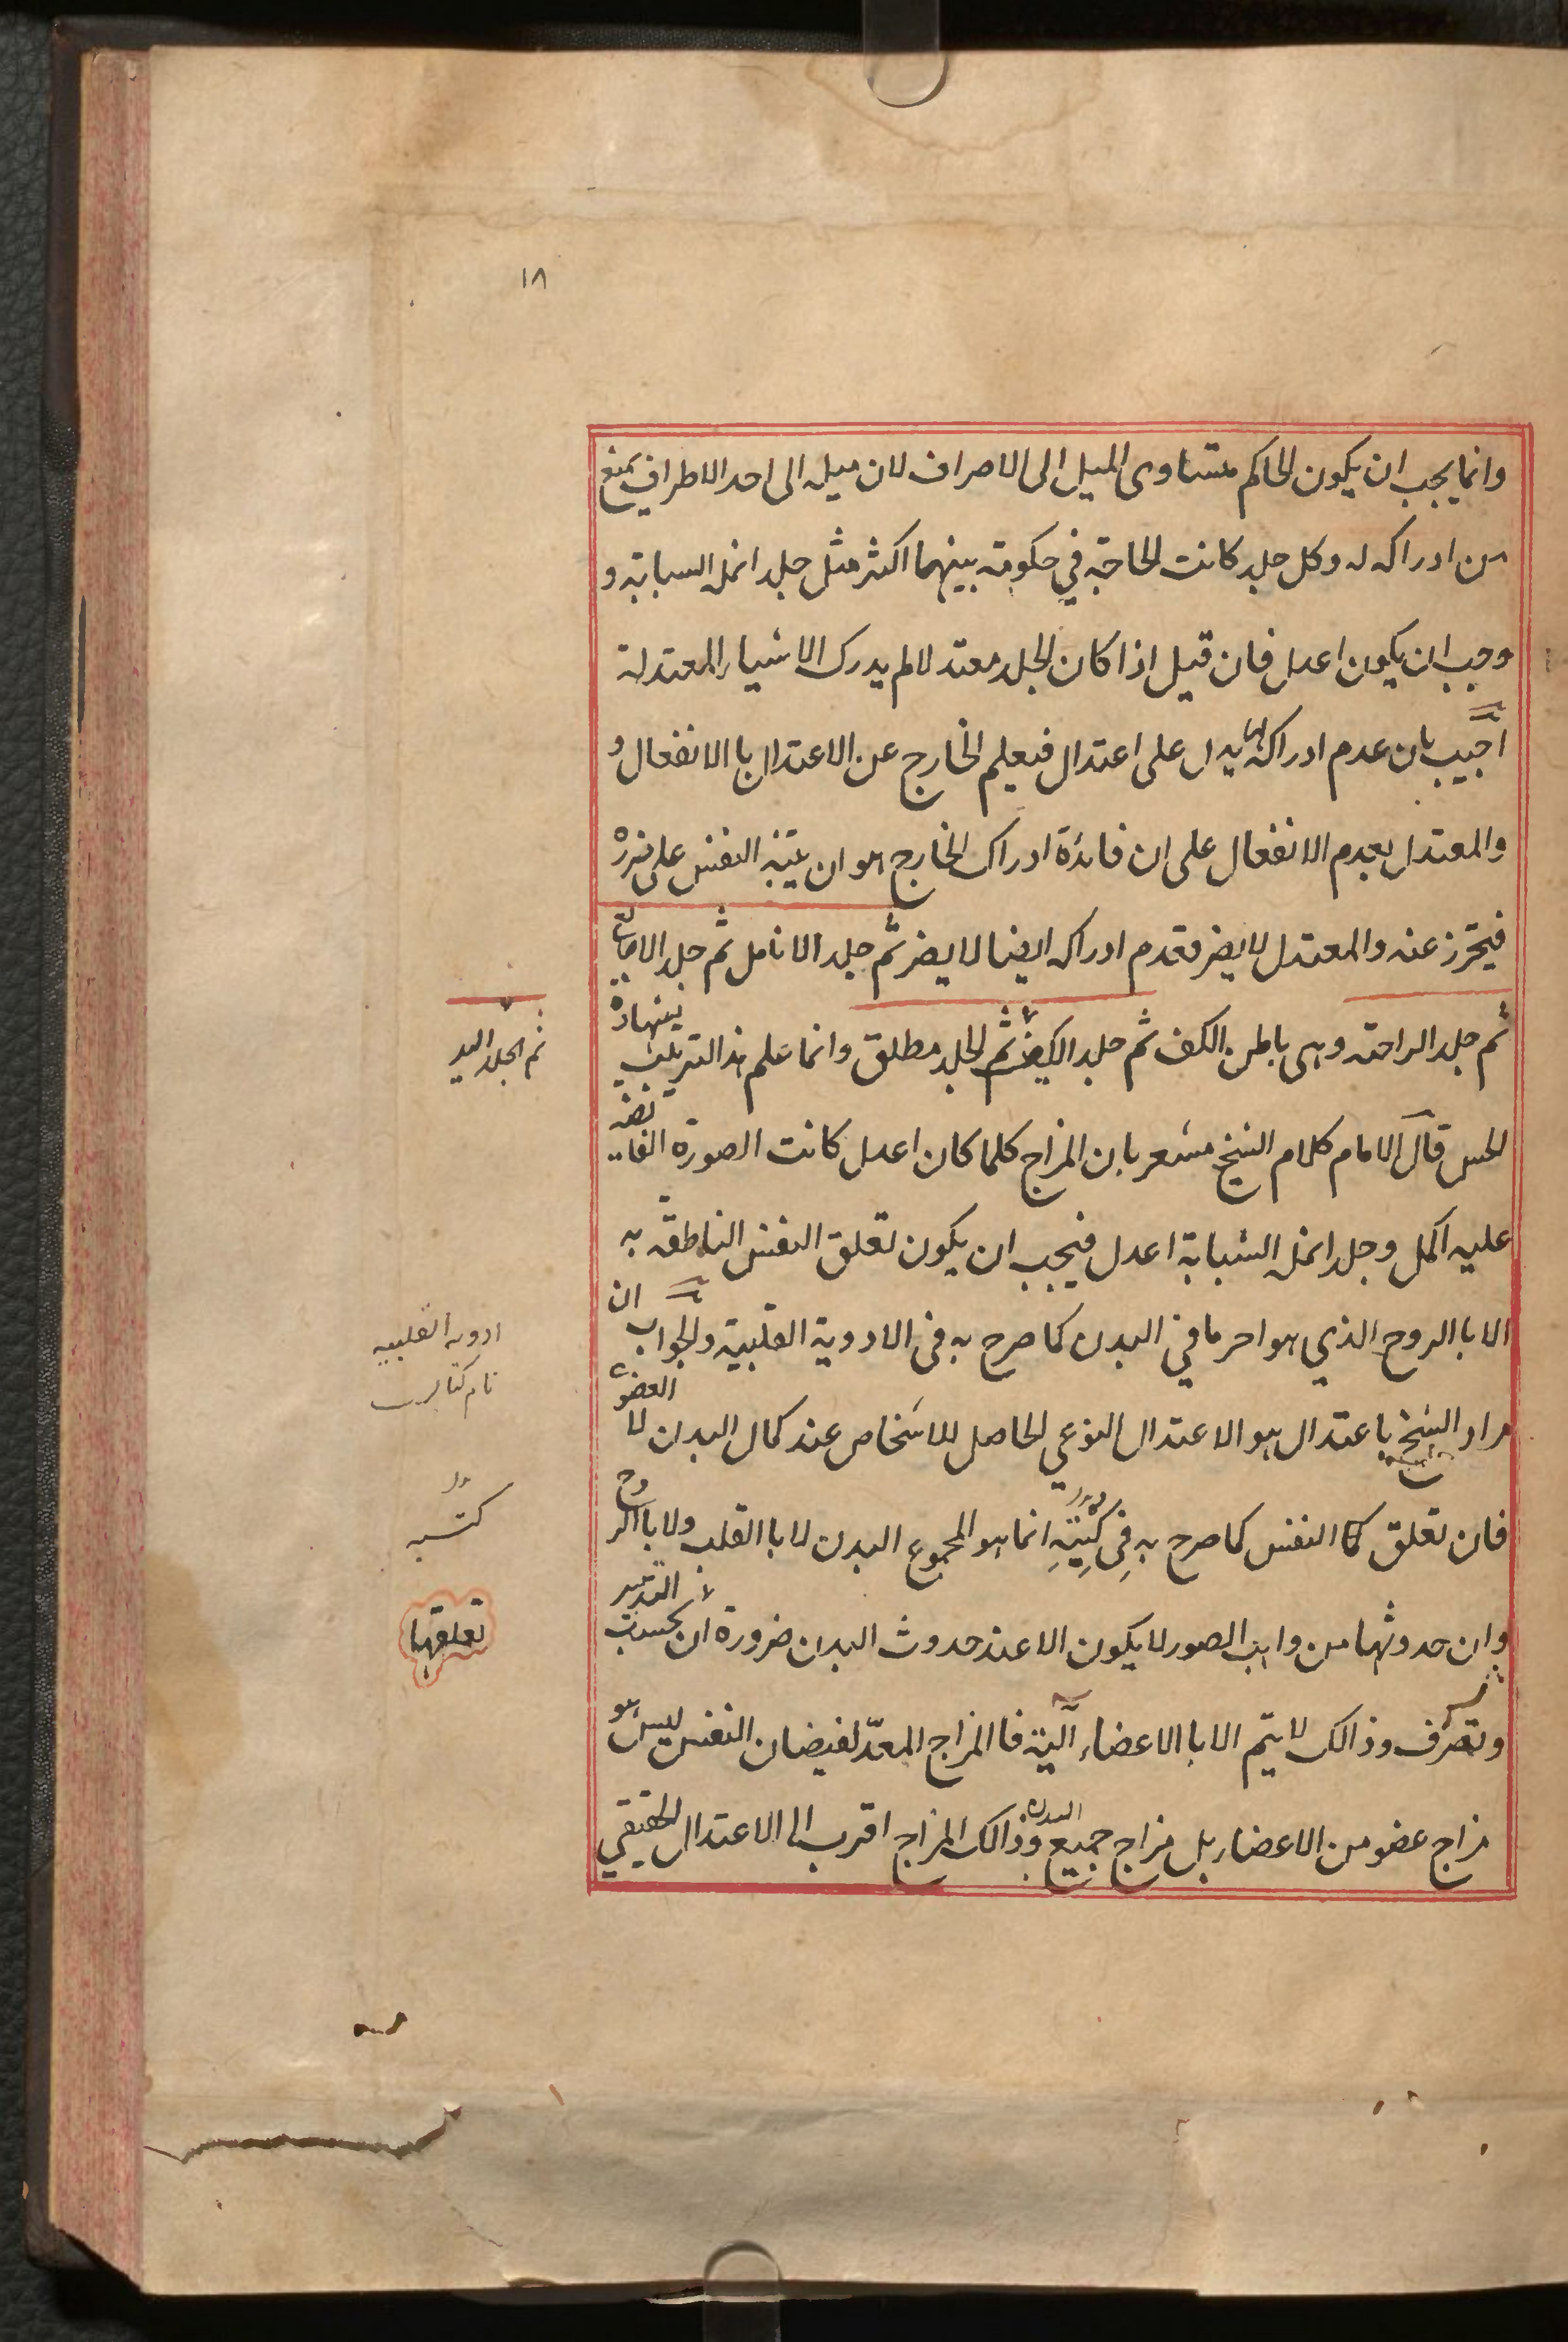 ١٨
وانما يجب ان يكون الحاكم متساوى الميل الى الاصراف لان ميله الى احد الاطراف يمنع
من ادراكه له وكل جلد كانت الحاجة في حكومته بينهما اكثر مثل جلد انملة السبابة و
وجب ان يكون اعدل فان قيل اذا كان الجلد معتدلا لم يدرك الاشياء المعتدلة
اجيب بان عدم ادراكه لها يدل على اعتدال فيعلم الخارج عن الاعتدال با الانفعال و
والمعتدل بعدم الانفعال على ان فائدة ادراك الخارج هو ان يتنبه النفس على ضرره
فيحترز عنه والمعتدل لا يضر فعدم ادراكه ايضا لا يضر ثم جلد الانامل ثم جلد الاصابع
ثم جلد الراحة وهى باطن الكف ثم جلد الكف ثم الجلد مطلق وانما علم هذا الترتيب بشهادة
ثم الجلد اليد
الحس قال الامام كلام الشيخ مشعر بان المزاج كلما كان اعدل كانت الصورة الفائضة
عليه اكمل وجلد انملة السبابة اعدل فيجب ان يكون تعلق النفس الناطقة به
الا با الروح الذي هو احر ما في البدن كما صرح به فى الادوية القلبية والجواب ان
ادويه القلبيه
نام كتابست
مراد الشيخ باعتدال هو الاعتدال النوعي الحاصل للاشخاص عند كمال البدن لا العضو
فان تعلق كا النفس كما صرح به فِى كُتِبِهِ انما هو المجموع البدن لا با القلب ولا با الروح
كتبه
وان حدوثها من واهب الصور لا يكون الا عند حدوث البدن ضرورة ان بحسب التدبير
تعلقها
وتصرف وذالك لا يتم الا با الاعضاء آلية فا المزاج المعدّ لفيضان النفس ليس هو
مزاج عضو من الاعضاء بل مزاج جميع البدن وذالك المزاج اقرب الى الاعتدال الحقيقي